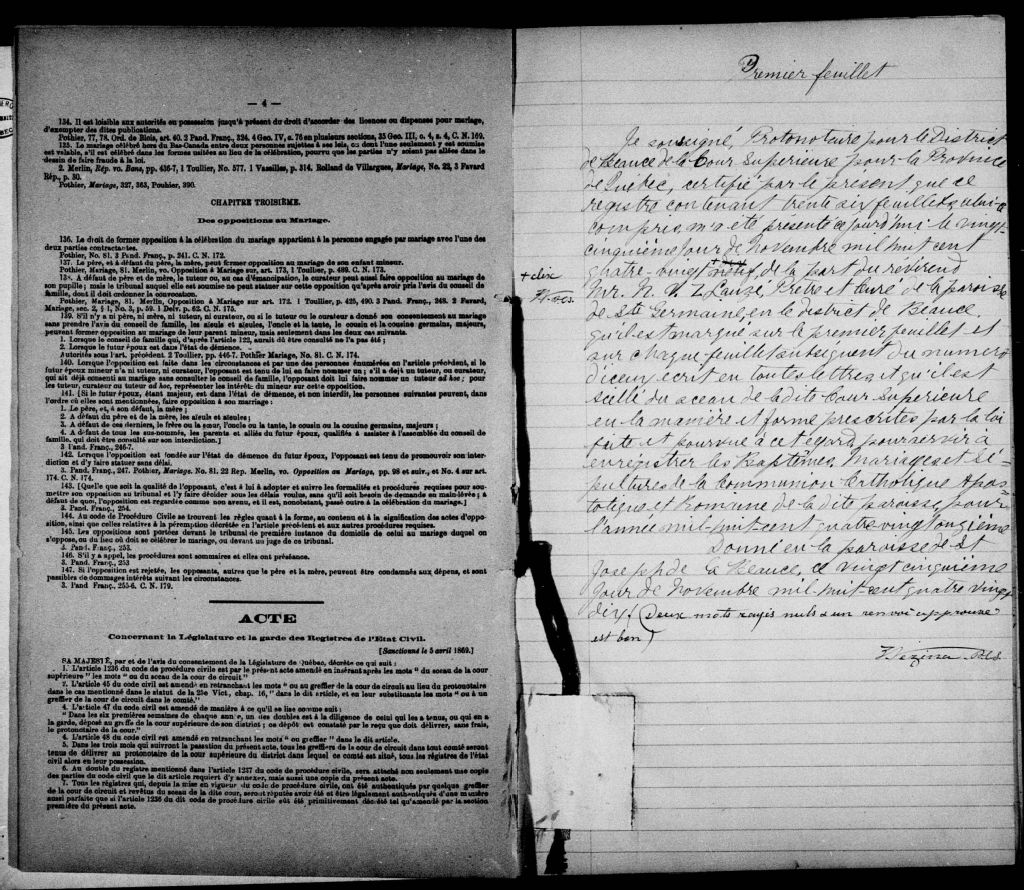 — 4 —
134. Il est loisible aux autorités en possession jusqu'à présent du droit d'accorder des licences ou dispenses pour mariage,
d'exempter des dites publications.
Pothier, 77, 78. Ord. de Blois, art. 40. 2 Pand. Franç., 324. 4 Geo. IV, c. 76 en plusieurs sections, 35 Geo. III, c. 4, s. 4, C. N. 169.
135. Le mariage célébré hors du Bas-Canada entre deux personnes sujettes à ses lois, ou dont l'une seulement y est soumise
est valable, s'il est célébré dans les formes usitées au lieu de la célébration, pourvu que les parties n'y soient pas allées dans le
dessin de faire fraude à la loi.
2. Merlin, Rép. vo. Bans, pp. 436-7, 1 Toullier, No. 577. 1 Vazeilles, p. 314. Rolland de Villargues, Mariage, No. 22, 3 Favard
Rép., p. 30.
Pothier, Mariage, 327, 363, Pouhier, 390.
CHAPITRE TROISIÈME.
Des oppositions au Mariage.
136. Le droit de former opposition à la célébration du mariage appartient à la personne engagée par mariage avec l'une des
deux parties contractantes.
Pothier, No. 81. 3 Pand. Franç., p. 241. C. N. 172.
137. Le père, et à défaut du père, la mère, peut former opposition au mariage de son enfant mineur.
Pothier, Mariage, 81. Merlin, vo. Opposition à Mariage sur art. 173, 1 Toullier, p. 489. C. N. 173.
138. A défaut de père et de mère, le tuteur, et au cas d'émancipation, le curateur peut aussi faire opposition au mariage de
son pupille; mais le tribunal auquel elle est soumise ne peut statuer sur cette opposition qu'après avoir pris l'avis du conseil de
famille, dont il doit ordonner la convocation.
Pothier, Mariage, 81. Merlin, Opposition à Mariage sur art. 172. 1 Toullier, p. 425, 490. 3 Pand. Franç., 248. 2 Favard,
Mariage, sec. 2, § 1, No. 3, p. 59. 1 Delv. p. 62. C. N. 175.
139. S'il n'y a ni père, ni mère, ni tuteur, ni curateur, ou si le tuteur ou le curateur a donné son consentement au mariage
sans prendre l'avis du conseil de famille, les aïeuls et aïeules, l'oncle et la tante, le cousin et la cousine germains, majeurs,
peuvent former opposition au mariage de leur parent mineur, mais seulement dans les deux cas suivants.
1. Lorsque le conseil de famille qui, d'après l'article 122, aurait dû être consulté ne l'a pas été;
2. Lorsque le futur époux est dans l'état de démence.
Autorités sous l'art. précédent. 2 Toullier, pp. 446-7. Pothier Mariage, No. 81. C. N. 174.
140. Lorsque l'opposition est faite dans les circonstances et par une des personnes énumérées en l'article précédent, si le
futur époux mineur n'a ni tuteur, ni curateur, l'opposant est tenu de lui en faire nommer un; s'il a déjà un tuteur, ou curateur,
qui ait déjà consenti au mariage sans consulter le conseil de famille, l'opposant doit lui faire nommer un tuteur ad hoc; pour
les tuteur, curateur ou tuteur ad hoc, représenter les intérêts du mineur sur cette opposition.
141. [Si le futur époux, étant majeur, est dans l'état de démence, et non interdit, les personnes suivantes peuvent, dans
l'ordre où elles sont mentionnées, faire opposition à son mariage:
1. Le père, et, à son défaut, la mère;
2. A défaut du père et de la mère, les aïeuls et aïeules;
3. A défaut de ces derniers, le frère ou la sœur, l'oncle ou la tante, le cousin ou la cousine germains, majeurs;
4. A défaut de tous les sus-nommés, les parents et alliés du futur époux, qualifiés à assister à l'assemblée du conseil de
famille, qui doit être consulté sur son interdiction.]
3 Pand. Franç., 246-7.
142. Lorsque l'opposition est fondée sur l'état de démence du futur époux, l'opposant est tenu de promouvoir son inter-
diction et d'y faire statuer sans délai.
3. Pand. Franç., 247. Pothier, Mariage. No. 81. 22 Rep. Merlin, vo. Opposition au Mariage, pp. 98 et suiv., et No. 4 sur art.
174. C. N. 174.
143. [Quelle que soit la qualité de l'opposant, c'est à lui à adopter et suivre les formalités et procédures requises pour sou-
mettre son opposition au tribunal et l'y faire décider sous les délais voulus, sans qu'il soit besoin de demande en main-levée; à
défaut de quoi, l'opposition est regardée comme non avenu, et il est, nonobstant, passé outre à la célébration du mariage.]
3. Pand. Franç., 254.
144. Au code de Procédure Civile se trouvent les règles quant à la forme, au contenu et à la signification des actes d'oppo-
sition, ainsi que celles relatives à la péremption décrétée en l'article précédent et aux autres procédures requises.
145. Les oppositions sont portées devant le tribunal de première instance du domicile de celui au mariage duquel on
s'oppose, ou du lieu où doit se célébrer le mariage, ou devant un juge de ce tribunal.
3. Pand. Franç., 253.
146. S'il y a appel, les procédures sont sommaires et elles ont préséance.
3. Pand. Franç., 253
147. Si l'opposition est rejetée, les opposants, autres que le père et la mère, peuvent être condamnés aux dépens, et sont
passibles de dommages intérêts suivant les circonstances.
3. Pand Franç., 255-6. C. N. 179.
ACTE
Concernant la Législature et la garde des Registres de l'Etat Civil.
[Sanctionné le 5 avril 1869.]
SA MAJESTÉ, par et de l'avis du consentement de la Législature de Québec, décrète ce qui suit:
1. L'article 1236 du code de procédure civile est par le présent acte amendé en insérant après les mots "du sceau de la cour
supérieure" les mots "ou du sceau de la cour de circuit."
2. L'article 45 du code civil est amendé en retranchant les mots "ou au greffier de la cour de circuit au lieu du protonotaire
dans le cas mentionné dans le statut de la 25e Vict., chap. 16," dans le dit article, et en leur substituant les mots "ou à un
greffier de la cour de circuit dans le comté."
4. L'article 47 du code civil est amendé de manière à ce qu'il se lise comme suit:
"Dans les six premières semaines de chaque année, un des doubles est à la diligence de celui qui les a tenus, ou qui en a
la garde, déposé au greffe de la cour supérieure de son district; ce dépôt est constaté par le reçu que doit délivrer, sans frais,
le protonotaire de la cour."
4. L'article 48 du code civil est amendé en retranchant les mots "ou greffier" dans le dit article.
5. Dans les trois mois qui suivront la passation du présent acte, tous les greffiers de la cour de circuit dans tout comté seront
tenus de délivrer au protonotaire de la cour supérieure du district dans lequel ce comté est situé, tous les régistres de l'état
civil alors en leur possession.
6. Au double du registre mentionné dans l'article 1237 du code de procédure civile, sera attaché non seulement une copie
des parties du code civil que le dit article requiert d'y annexer, mais aussi une copie du présent acte.
7. Tous les régistres qui, depuis la mise en vigueur du code de procédure civile, ont été authentiqués par quelque greffier
de la cour de circuit et revêtus du sceau de la dite cour, seront réputés avoir été et être légalement authentiqués d'une manière
aussi parfaite que si l'article 1236 du dit code de procédure civile eût été primitivement décrété tel qu'amendé par la section
première du présent acte.
Premier feuillet
Je soussigné, Protonotaire pour le District
de Beauce de la Cour Superieure pour la Province
de Québec, certifié par le présent que ce
registre contenant trente six feuillets celui-ci
compris, m'a été présenté ce jourd'hui le vingt-
cinquième jour de Novembre mil huit cent
quatre-vingt + neuf, de la part du révérend
+ dix
Mr. N. U. Z Lauzé, Prêtre et curé de la paroisse
de Ste Germaine, en le district de Beauce
qu'il est marqué sur le premier feuillet et
sur chaque feuillet subséquent du numero
d'iceux écrit en toutes lettres et qu'il est
scellé du sceau de la dite Cour Superieure
en la manière et forme prescrites par la loi
faite et pourvue à cet égard, pour servir à
enrégistrer les Baptêmes, Mariages et Sé-
pultures de la Communion Catholique Apos-
tolique et Romaine de la dite paroisse, pour
l'année mil-huit-cent quatre vingt onzième
Donné en la paroisse de St
Joseph de la Beauce, ce vingt cinquième
jour de Novembre mil-huit-cent quatre vingt
dix. (Deux mots rayés nuls & un renvoi approuvé
est bon)
Vézina P.C.S.